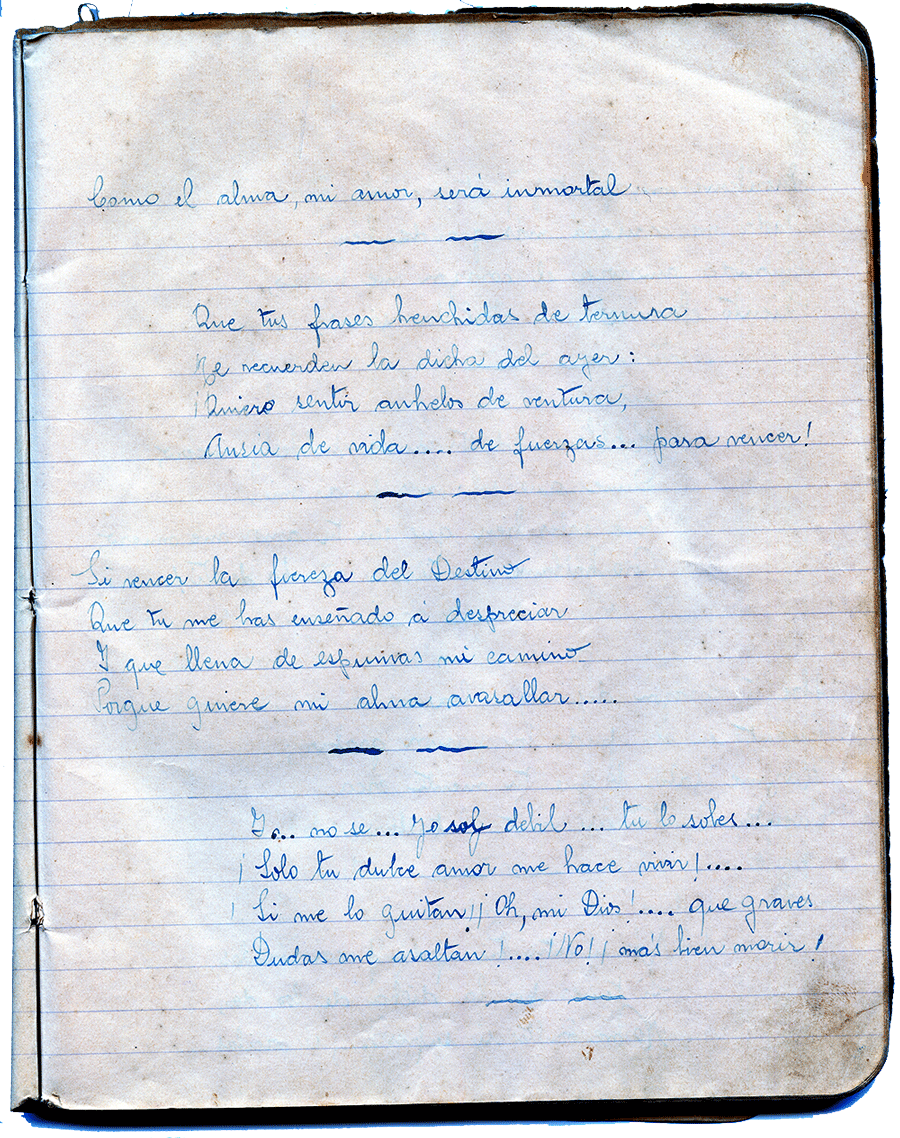 Como el alma, mi amor, será inmortal
Que tus frases henchidas de ternura
Me recuerden la dicha del ayer:
¡Quiero sentir anhelos de ventura,
Ansia de vida.... de fuerzas... para vencer!
Si vencer la fiereza del Destino
Que tu me has enseñado á despreciar
Y que llena de espinas mi camino
Porque quiere mi alma avasallar.....
Y... no se... Yo soy debil... tu lo sabes...
¡Solo tu dulce amor me hace vivir!....
¡Si me lo quitan!¡Oh, mi Dios!.... que graves
Dudas me asaltan!....¡No!¡más bien morir!